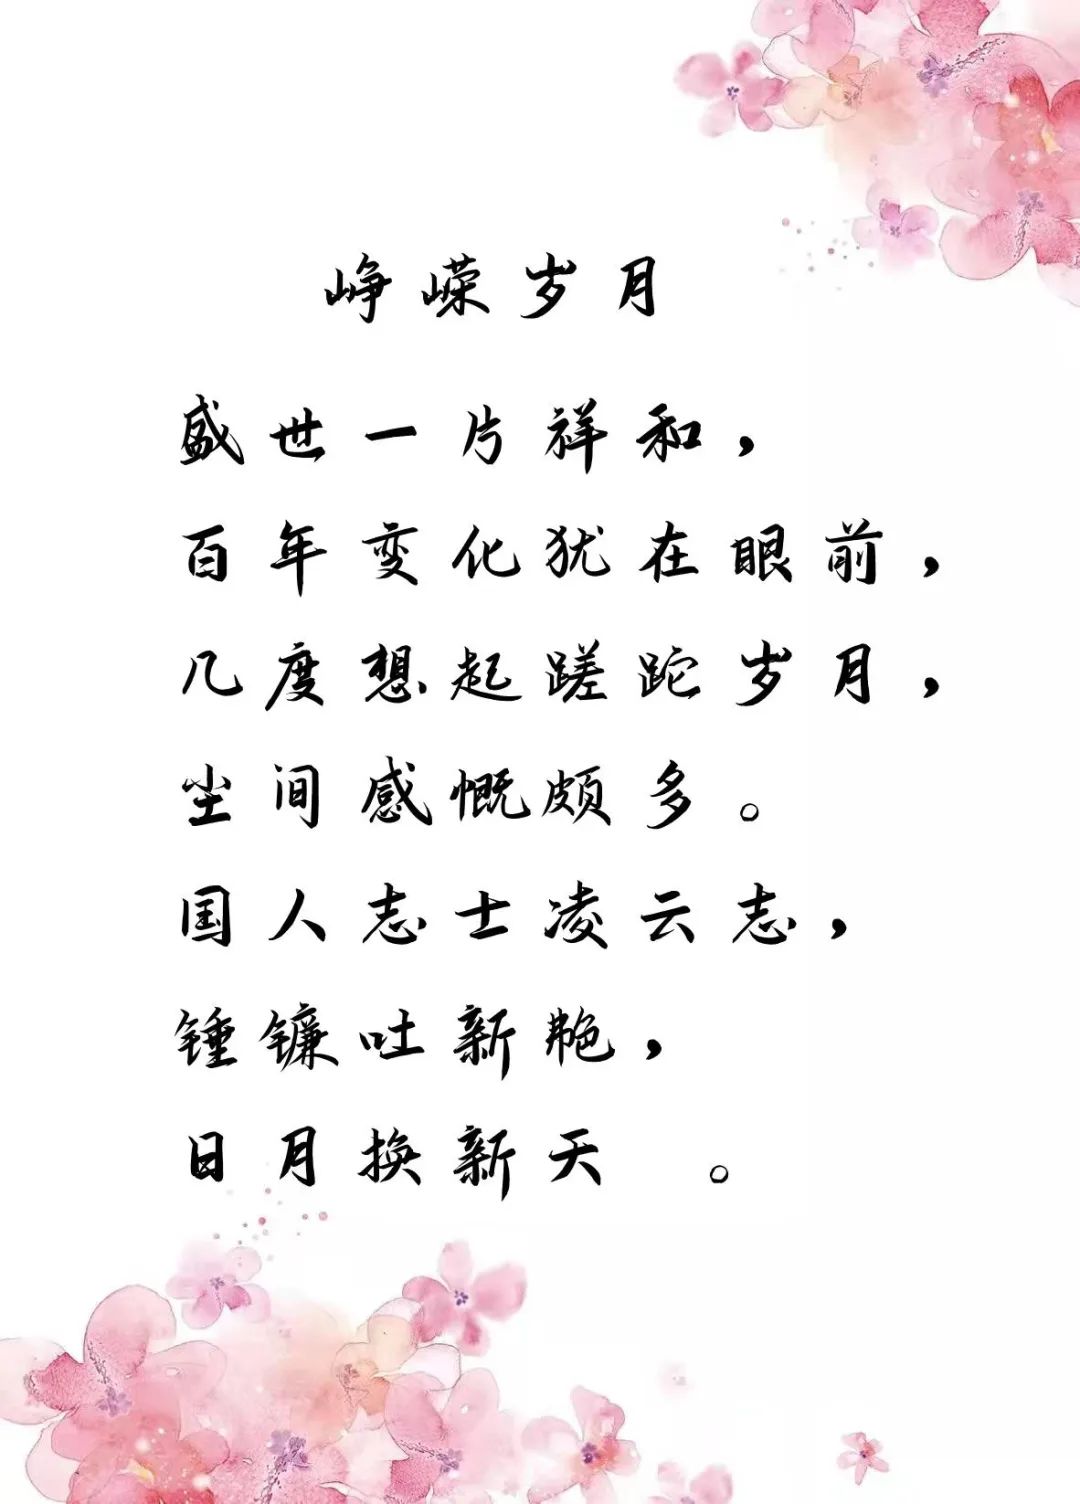 峥嵘岁月
盛世一片祥和，
百年变化犹在眼前，
几度想起蹉跎岁月，
尘间感慨颇多。
国人志士凌云志，
锤镰吐新艳，
日月换新天 。